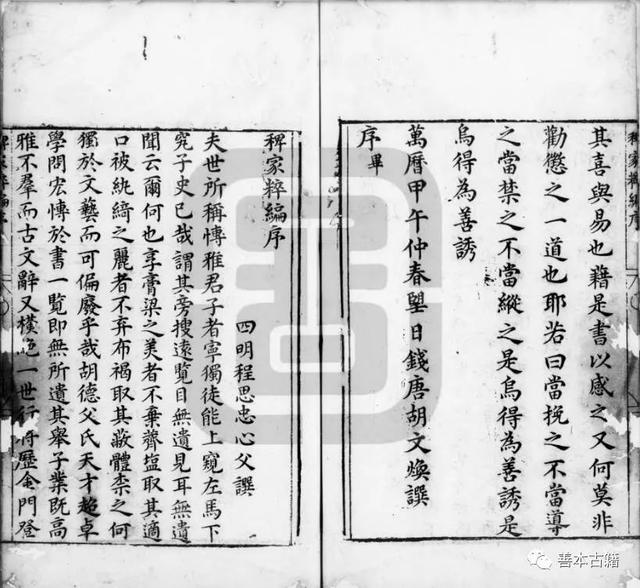 其喜與易也藉是書以感之又何莫非
勸懲之一道也耶若曰當挽之不當導
之當禁之不當縱之是烏得為善誘是
烏得為善誘
萬曆甲午仲春朢日錢唐胡文煥譔
序畢
稗家粹編序
四明程思忠心父譔
夫世所稱愽雅君子者寧獨徒能上窺左馬下
究子史已哉謂其旁搜遠覽目無遺見耳無遺
聞云爾何也享膏梁之美者不棄薺塩取其適
口被紈綺之麗者不弃布褐取其蔽體柰之何
獨於文藝而可偏廢乎哉胡德父氏天才超卓
學問宏愽於書一覧即無所遺其舉子業既高
雅不羣而古文辭又橫絕一世行將歷金門登
稗家粹編序
善本古籍